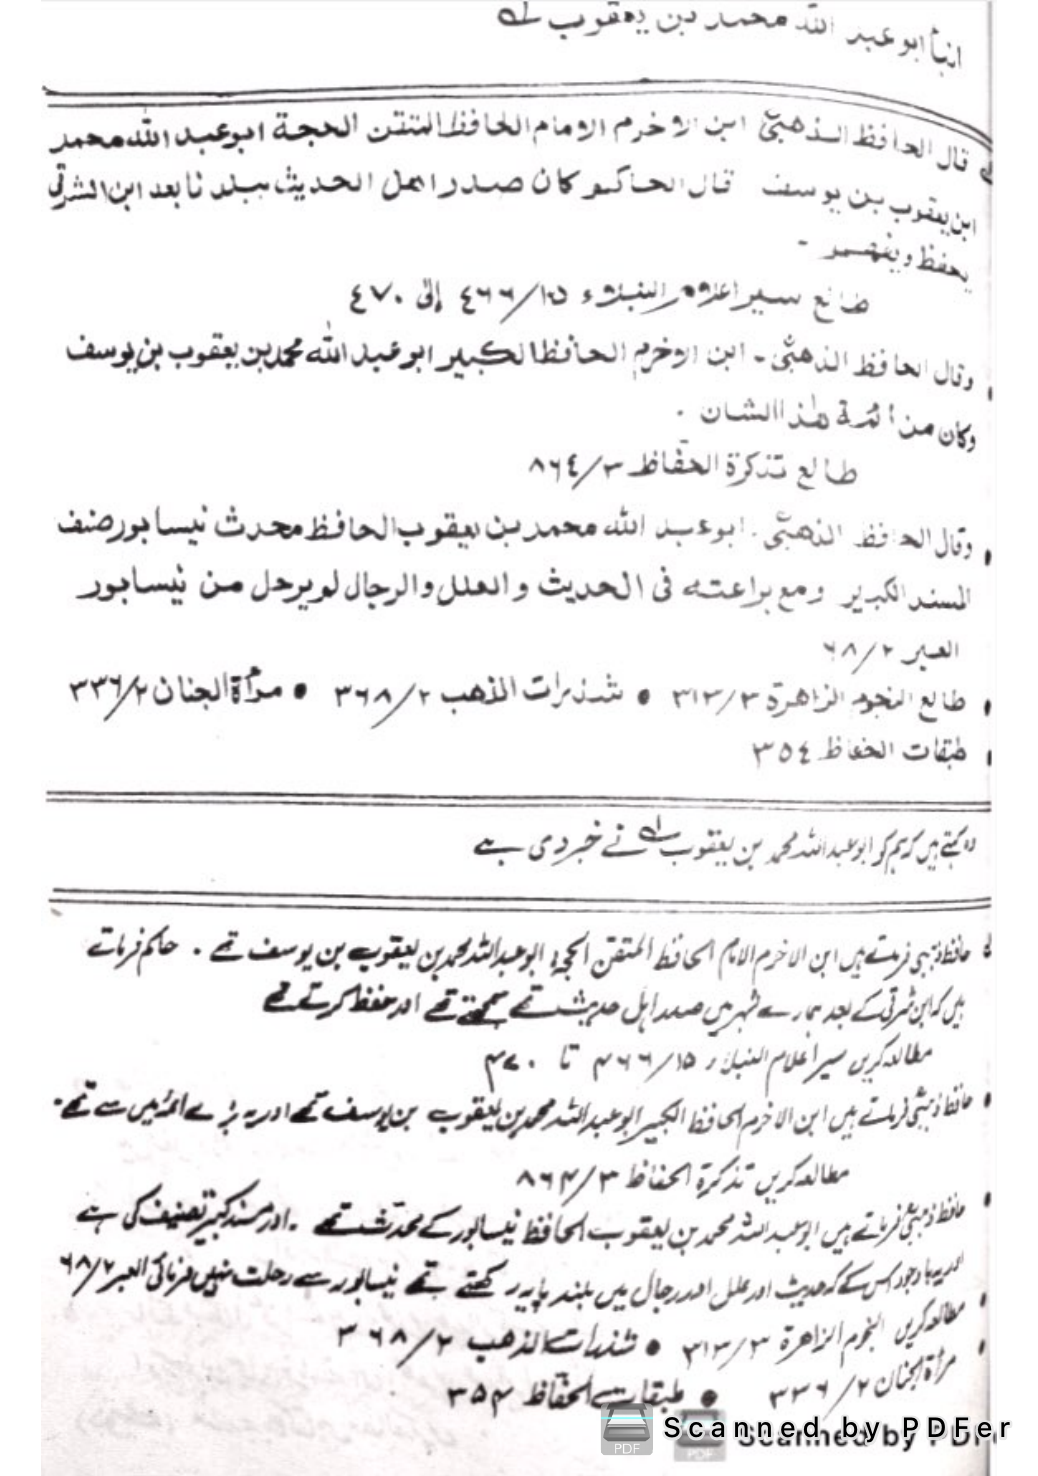 انبأ ابو عبد الله محمد بن يعقوب لے
لے قال الحافظ الذهبیؒ ابن الاخرم الامام الحافظ المتقن الحجة ابو عبد الله محمد
ابن يعقوب بن يوسف قال الحاكم كان صدر اهل الحديث ببلدنا بعد ابن الشرقی
يحفظ ويفهم -
طالع سير اعلام النبلاء ١٥/٤٦٦ إلى ٤٧٠
• وقال الحافظ الذهبیؒ - ابن الاخرم الحافظ الكبير ابو عبد الله محمد بن يعقوب بن يوسف
وكان من أئمة هذا الشان .
طالع تذكرة الحفاظ ٣/٨٦٤
• وقال الحافظ الذهبیؒ . ابو عبد الله محمد بن يعقوب الحافظ محدث نيسابور صنف
المسند الكبير ومع براعته فى الحديث والعلل والرجال لم يرحل من نيسابور
العبر ٢/٦٨
• طالع النجوم الزاهرة ٣/٣١٣ • شذرات الذهب ٢/٣٦٨ • مرأة الجنان ٢/٣٣٦
• طبقات الحفاظ ٣٥٤
وہ کہتے ہیں کہ ہم کو ابو عبد اللہ محمد بن یعقوب لے نے خبر دی ہے
لے حافظ ذہبی فرماتے ہیں ابن الاخرم الامام الحافظ المتقن الحجۃ ابو عبد اللہ محمد بن یعقوب بن یوسف تھے . حاکم فرماتے
ہیں کہ ابن شرقی کے بعد ہمارے شہر میں صدر اہل حدیث تھے سمجھتے تھے اور حفظ کرتے تھے
مطالعہ کریں سیر اعلام النبلاء ۱۵/۴۶۶ تا ۴۷۰
• حافظ ذہبیؒ فرماتے ہیں ابن الاخرم الحافظ الکبیر ابو عبد اللہ محمد بن یعقوب بن یوسف تھے اور یہ بڑے ائمہ میں سے تھے .
مطالعہ کریں تذکرۃ الحفاظ ۳/۸۶۴
• حافظ ذہبیؒ فرماتے ہیں ابو عبد اللہ محمد بن یعقوب الحافظ نیسابور کے محدث تھے . اور مسند کبیر تصنیف کی ہے
اور یہ باوجود اس کے کہ حدیث اور علل اور رجال میں بلند پایہ رکھتے تھے نیسابور سے رحلت نہیں فرمائی العبر ۲/۶۸
• مطالعہ کریں النجوم الزاهرة ۳/۳۱۳ • شذرات الذهب ۲/۳۶۸
• مرأة الجنان ۲/۳۳۶ • طبقات الحفاظ ۳۵۴
PDF Scanned by PDFer
PDF Scanned by PDF